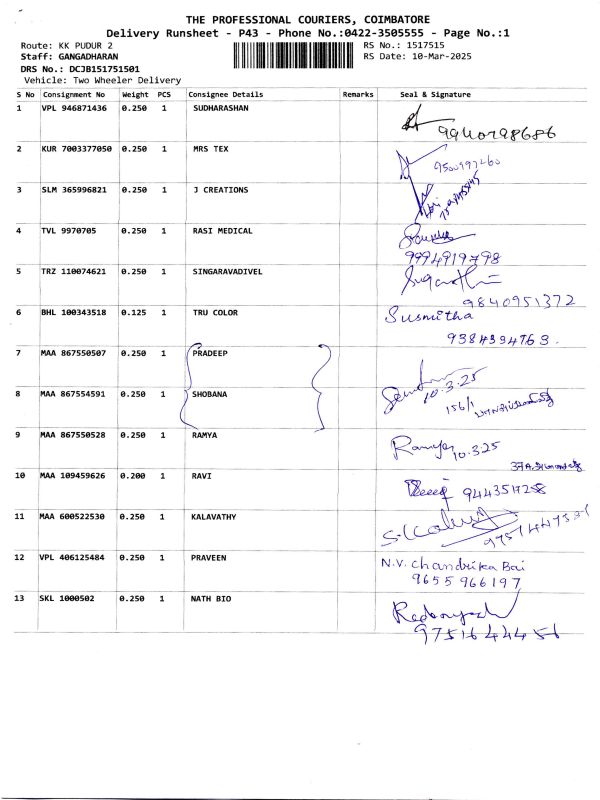 THE PROFESSIONAL COURIERS, COIMBATORE
Delivery Runsheet - P43 - Phone No.:0422-3505555 - Page No.:1
Route: KK PUDUR 2
RS No.: 1517515
Staff: GANGADHARAN
RS Date: 10-Mar-2025
DRS No.: DCJB151751501
Vehicle: Two Wheeler Delivery
S No Consignment No Weight PCS Consignee Details Remarks Seal & Signature
1 VPL 946871436 0.250 1 SUDHARASHAN
2 KUR 7003377050 0.250 1 MRS TEX
3 SLM 365996821 0.250 1 J CREATIONS
4 TVL 9970705 0.250 1 RASI MEDICAL
9994919798
5 TRZ 110074621 0.250 1 SINGARAVADIVEL
9840951372
6 BHL 100343518 0.125 1 TRU COLOR Susmitha
9384394763.
7 MAA 867550507 0.250 1 PRADEEP
10.3.25
8 MAA 867554591 0.250 1 SHOBANA
156/1
9 MAA 867550528 0.250 1 RAMYA Ramya
10.3.25
10 MAA 109459626 0.200 1 RAVI
11 MAA 600522530 0.250 1 KALAVATHY
12 VPL 406125484 0.250 1 PRAVEEN N.V. Chandrika Bai
9655966197
13 SKL 1000502 0.250 1 NATH BIO
9751644456